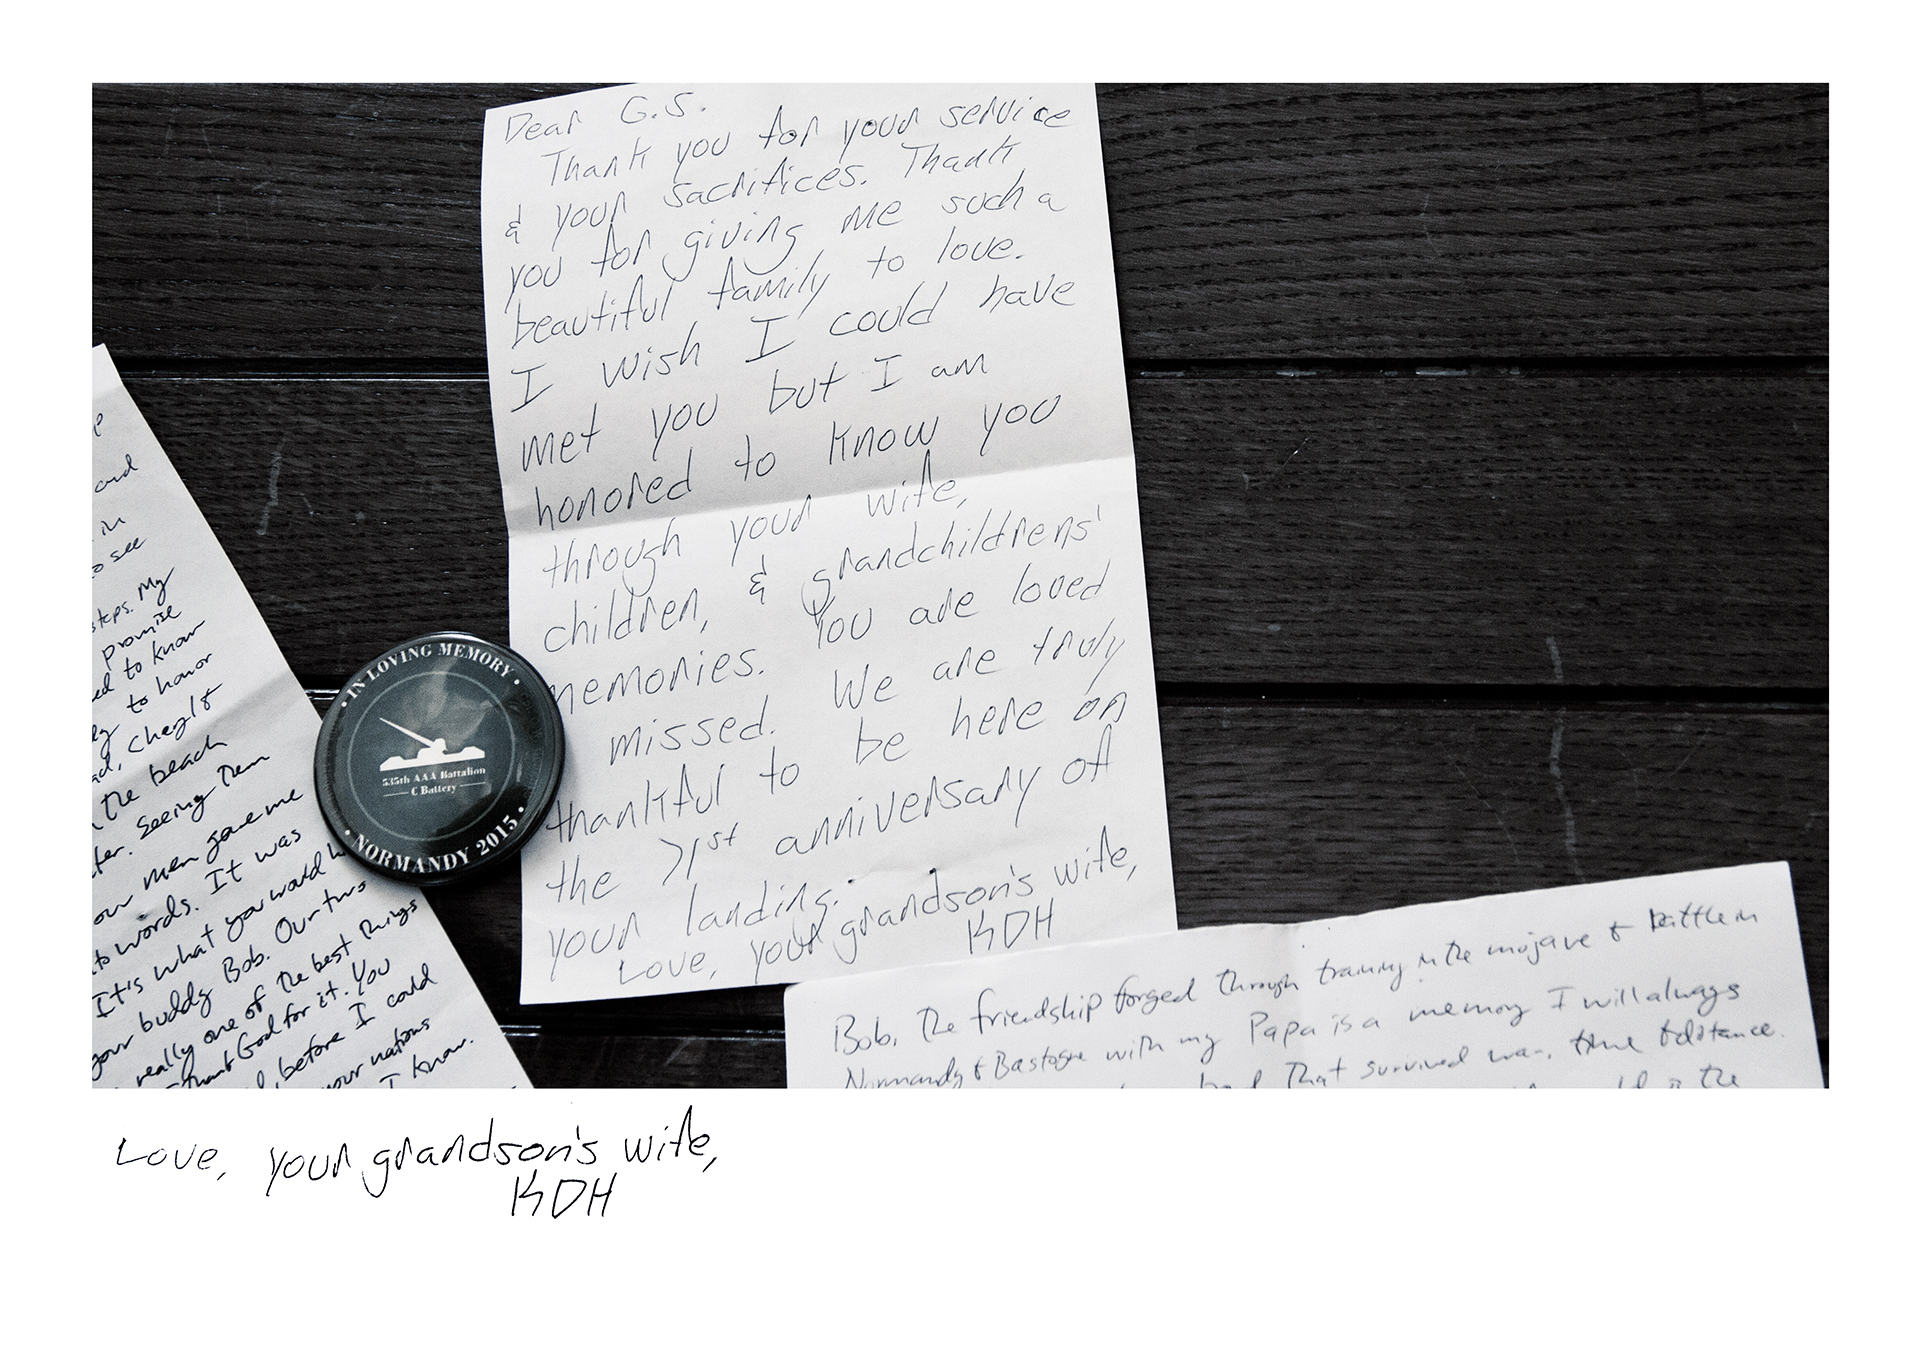 Dear G.S.
Thank you for your service
& your sacrifices. Thank
you for giving me such a
beautiful family to love.
I wish I could have
met you but I am
honored to know you
through your wife,
children, & grandchildrens'
memories. You are loved
missed. We are truly
thankful to be here on
the 71st anniversary of
your landing.
Love, your grandson's wife,
KDH
and
in
to see
steps. My
promise
to know
to honor
the beach
Seeing them
our men gave me
words. It was
It's what you would
your buddy Bob. Our two
really one of the best things
thank God for it. You
before I could
your nations
I know.
IN LOVING MEMORY
535th AAA Battalion
C Battery
NORMANDY 2015
Bob, the friendship forged through training in the mojave & battle in
Normandy & Bastogne with my Papa is a memory I will always
that survived war, time & distance.
the
Love, your grandson's wife,
KDH